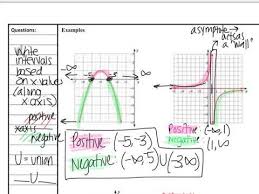 Questions:
Examples
asymptote →
acts as
a "wall"
Write
intervals
based
on x values
(along
x axis)
positive
x axis
negative
U = union
U
-∞
∞
-5
-3
Positive (-5,-3)
Negative (-∞,5) U (-3,∞)
Positive (-∞,1)
Negative (1,∞)